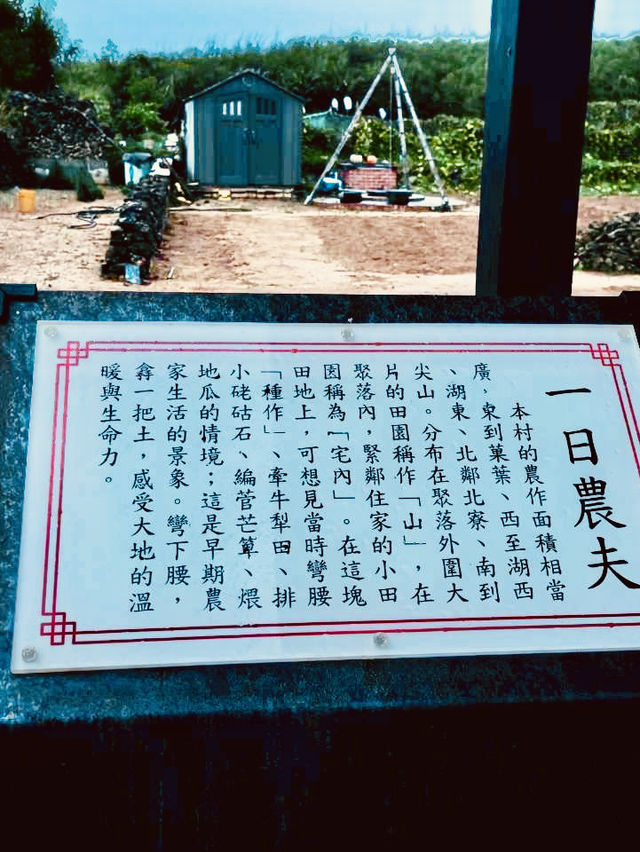 一日農夫
本村的農作面積相當
廣，東到菓葉、西至湖西
、湖東、北鄰北寮、南到
尖山。分布在聚落外圍大
片的田園稱作「山」，在
聚落內，緊鄰住家的小田
園稱為「宅內」。在這塊
田地上，可想見當時彎腰
「種作」、牽牛犁田、排
小硓𥑮石、編菅芒簟、煨
地瓜的情境；這是早期農
家生活的景象。彎下腰，
掬一把土，感受大地的溫
暖與生命力。